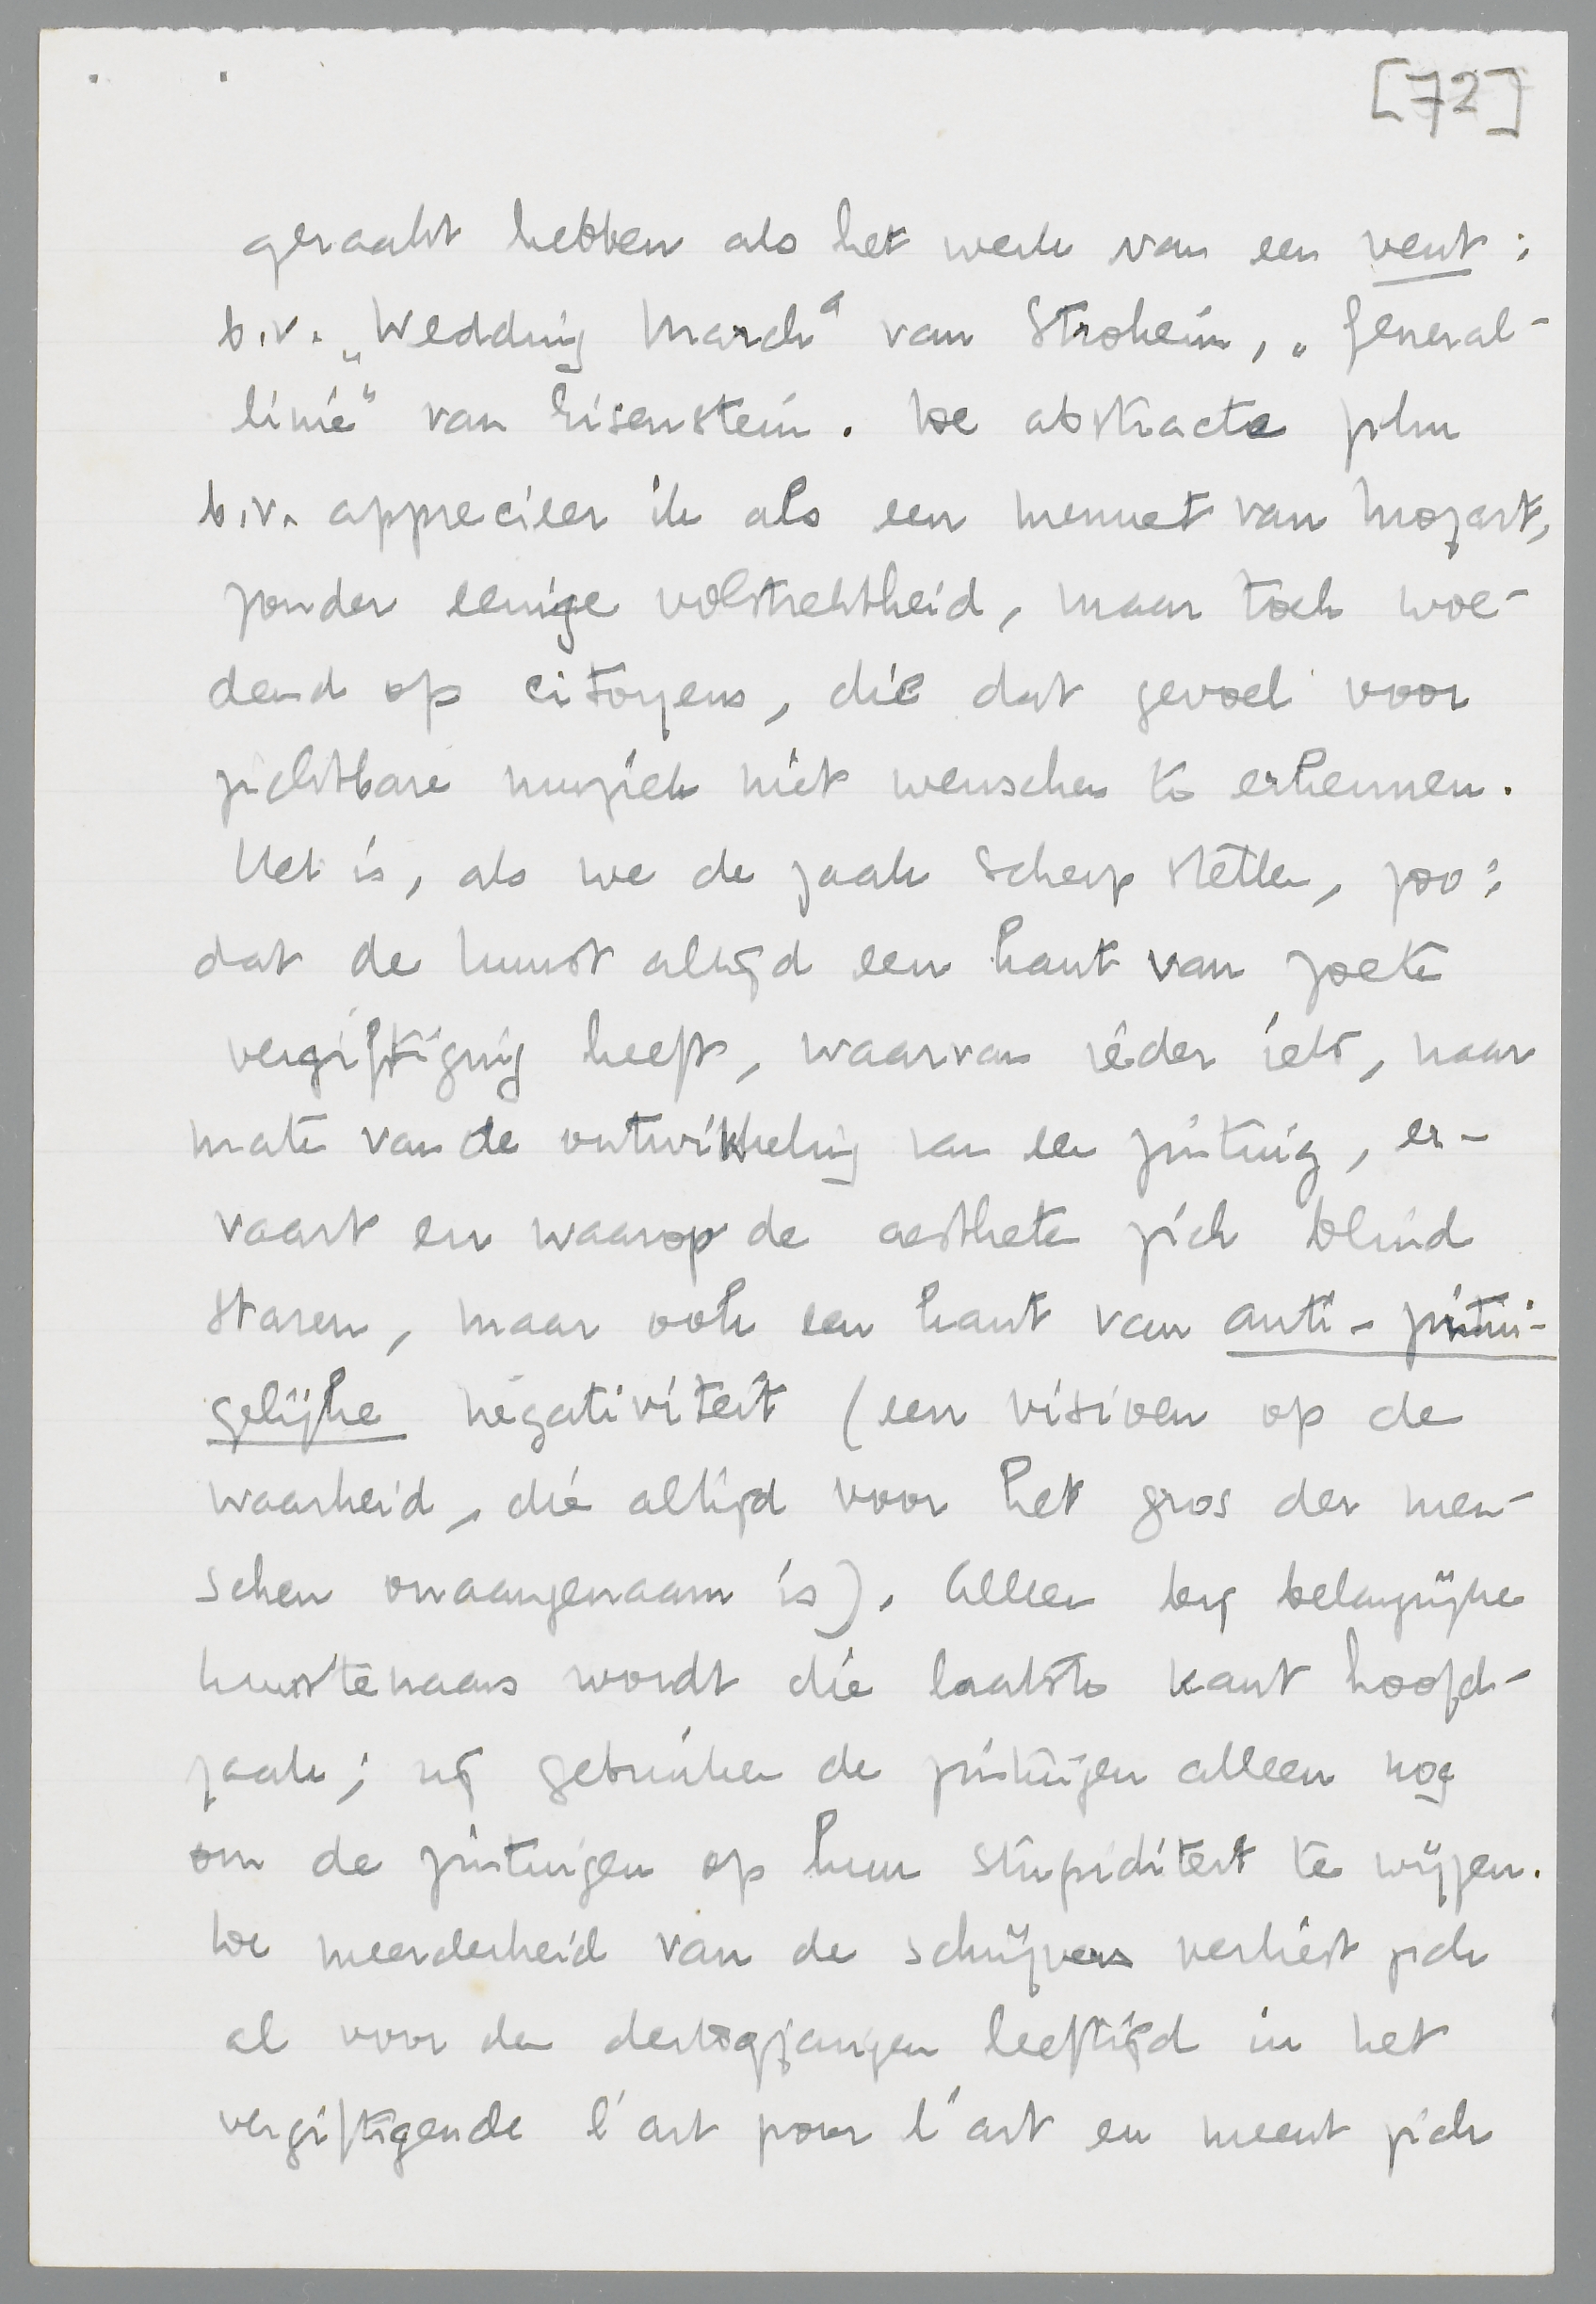 [72]
geraakt hebben als het werk van een vent:
b.v. „Wedding March" van Stroheim, „General-
linie" van Eisenstein. De abstracte film
b.v. apprecieer ik als een menuet van Mozart,
zonder eenige volstrektheid, maar toch woe-
dend op citoyens, die dat gevoel voor
zichtbare muziek niet wenschen te erkennen.
Het is, als we de zaak scherp stellen, zoo:
dat de kunst altijd een kant van zoete
vergiftiging heeft, waarvan ieder iets, naar
mate van de ontwikkeling van een zintuig, er-
vaart en waarop de aestheten zich blind
staren, maar ook een kant van anti-zintui-
gelijke negativiteit (een visioen op de
waarheid, die altijd voor het gros der men-
schen onaangenaam is). Alleen bij belangrijke
kunstenaars wordt die laatste kant hoofd-
zaak; zij gebruiken de zintuigen alleen nog
om de zintuigen op hun stupiditeit te wijzen.
De meerderheid van de schrijvers verliest zich
al voor den dertigjarigen leeftijd in het
vergiftigende l'art pour l'art en meent zich